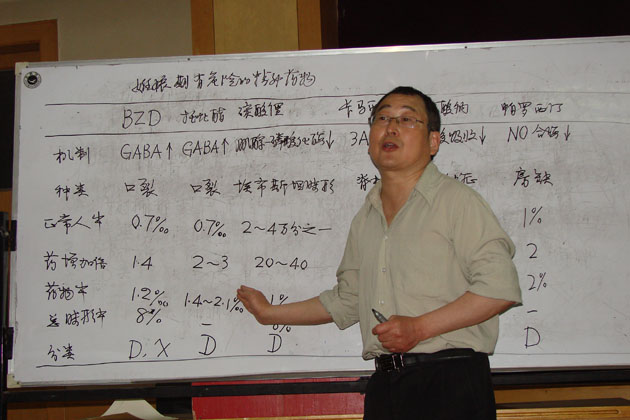 妊娠期有危险的精神药物
BZD 碳酸锂 卡马 酸钠 帕罗西汀
机制 GABA↑ GABA↑ 肌醇-磷酸化酶↓ 3A 吸收↓ NO合酶↓
种类 口裂 口裂 埃布斯坦畸形 脊 征 房缺
正常人率 0.7‰ 0.7‰ 2~4万分之一 1%
药增加倍 1.4 2~3 20~40 2
药物率 1.2‰ 1.4~2.1‰ 1% 2%
总畸形率 8% - -
分类 D,X D D D